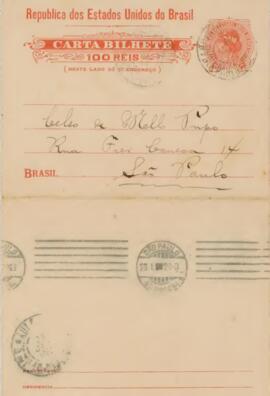 Republica dos Estados Unidos do Brasil
CARTA BILHETE
100 RÉIS
(NESTE LADO SÓ O ENDEREÇO)
Celso de Mello Pupo
Rua Frei Caneca 14
BRASIL São Paulo
SÃO PAULO